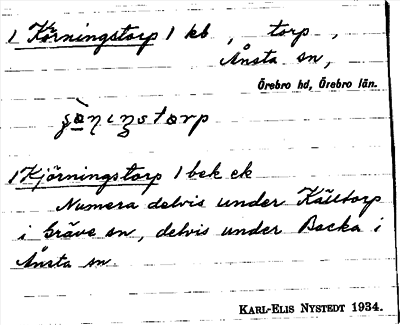 1 Körningstorp 1 kb, torp,
Ånsta sn,
Örebro hd, Örebro län.
1 Kjörningstorp 1 bek ek
Numera delvis under Källtorp
i Gräve sn, delvis under Backa i
Ånsta sn
KARL-ELIS NYSTEDT 1934.